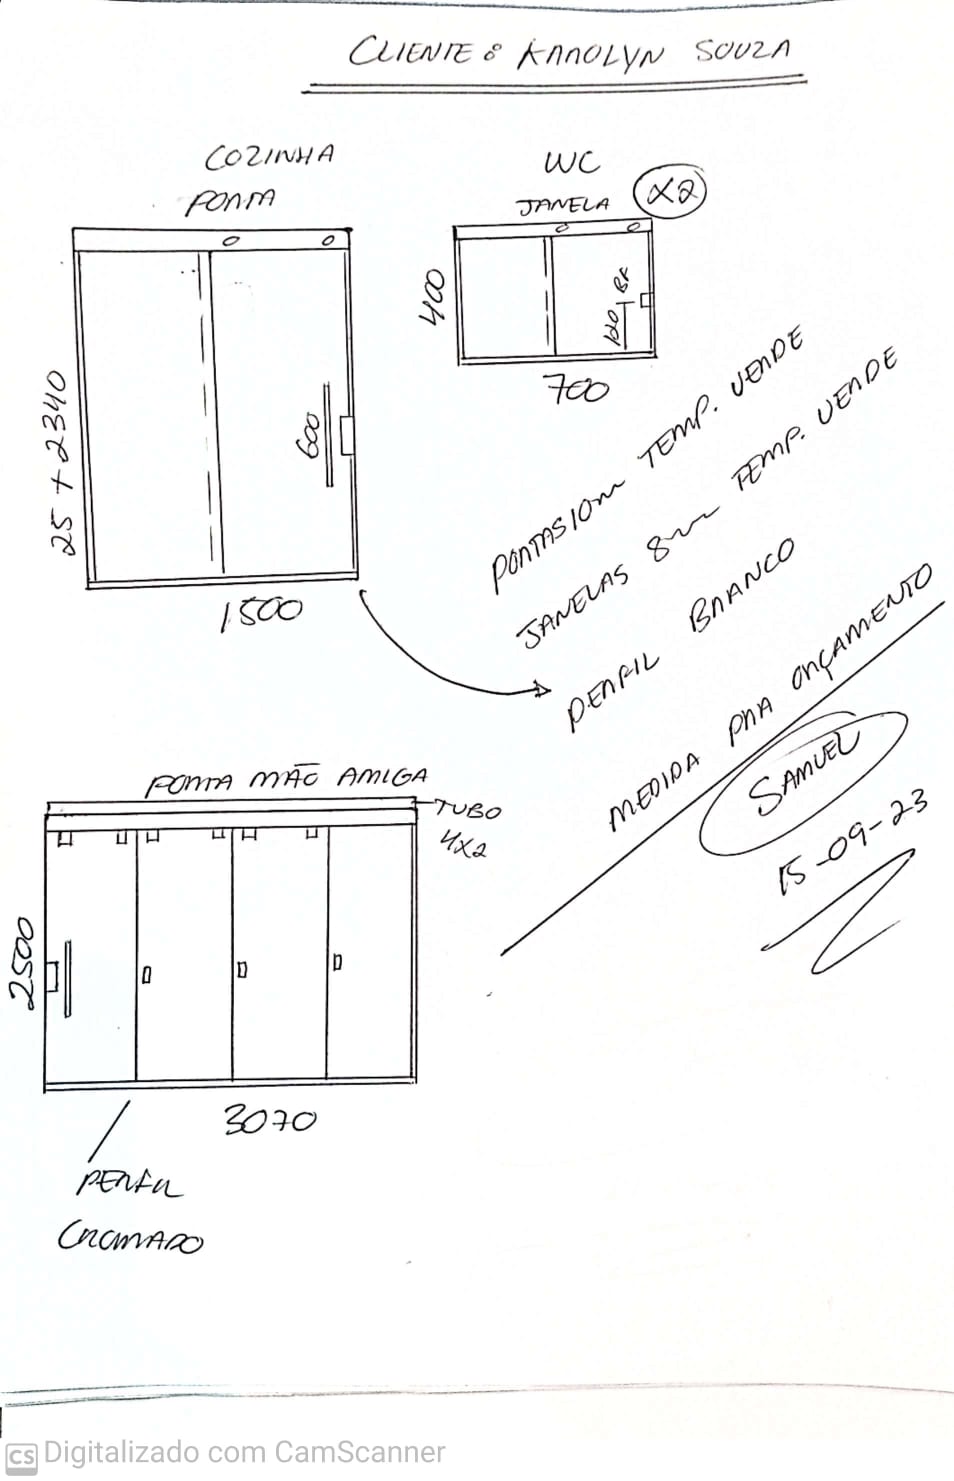 CLIENTE: KAROLYN SOUZA
COZINHA
PORTA
25 + 2340
600
1500
WC
JANELA
X2
400
120
BX
700
PORTAS 10m TEMP. VERDE
JANELAS 8m TEMP. VERDE
PERFIL BRANCO
MEDIDA PRA ORÇAMENTO
SAMUEL
15-09-23
PORTA MÃO AMIGA
TUBO
4X2
2500
3070
PERFIL
CROMADO
CS Digitalizado com CamScanner